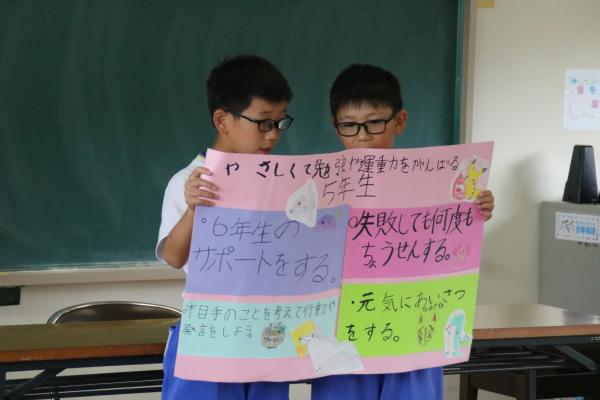 やさしくて勉強や運動力をがんばる
5年生
・6年生の
サポートをする。
・失敗しても何度も
ちょうせんする。
・相手のことを考えて行動や
発言をしよう
・元気にあいさつ
をする。
音を